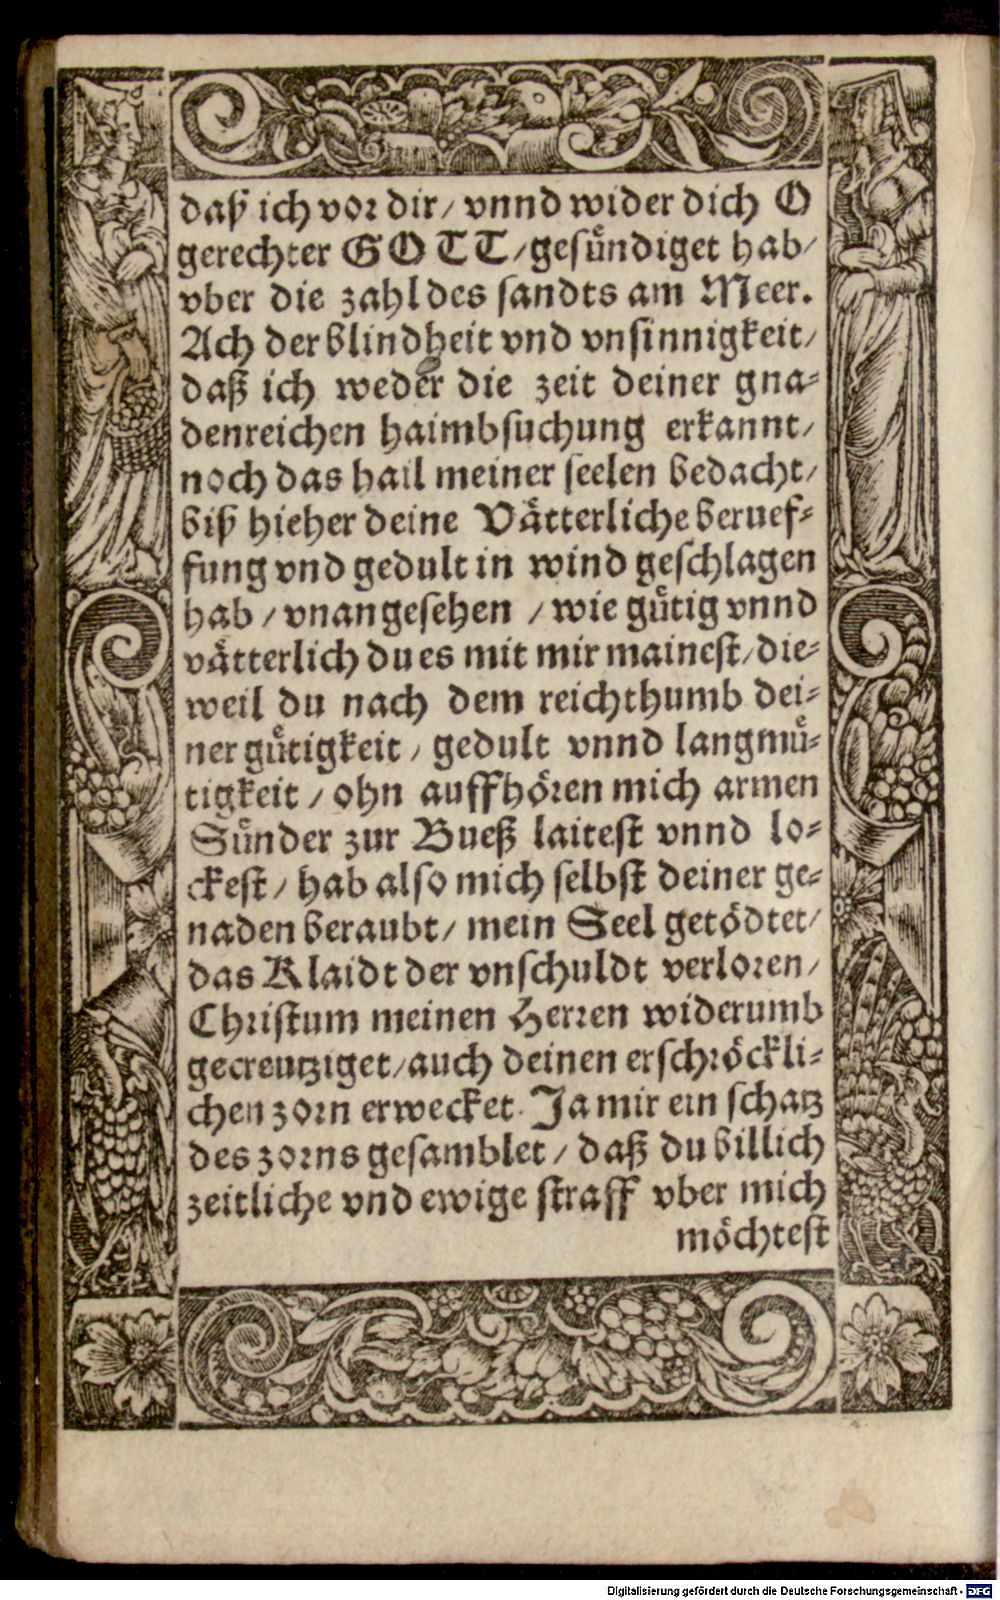 daß ich vor dir/ vnnd wider dich O
gerechter GOTT/ gesuͤndiget hab/
vber die zahl des sandts am Meer.
Ach der blindheit vnd vnsinnigkeit/
daß ich weder die zeit deiner gna⸗
denreichen haimbsuchung erkannt/
noch das hail meiner seelen bedacht/
biß hieher deine Vaͤtterliche beruef⸗
fung vnd gedult in wind geschlagen
hab / vnangesehen / wie guͤtig vnnd
vaͤtterlich du es mit mir mainest/ die⸗
weil du nach dem reichthumb dei⸗
ner guͤtigkeit / gedult vnnd langmuͤ⸗
tigkeit / ohn auffhoͤren mich armen
Suͤnder zur Bueß laitest vnnd lo⸗
ckest / hab also mich selbst deiner ge⸗
naden beraubt/ mein Seel getoͤdtet/
das Klaidt der vnschuldt verloren/
Christum meinen Herren widerumb
gecreutziget/ auch deinen erschroͤckli⸗
chen zorn erwecket. Ja mir ein schatz
des zorns gesamblet / daß du billich
zeitliche vnd ewige straff vber mich
moͤchtest
Digitalisierung gefördert durch die Deutsche Forschungsgemeinschaft - DFG